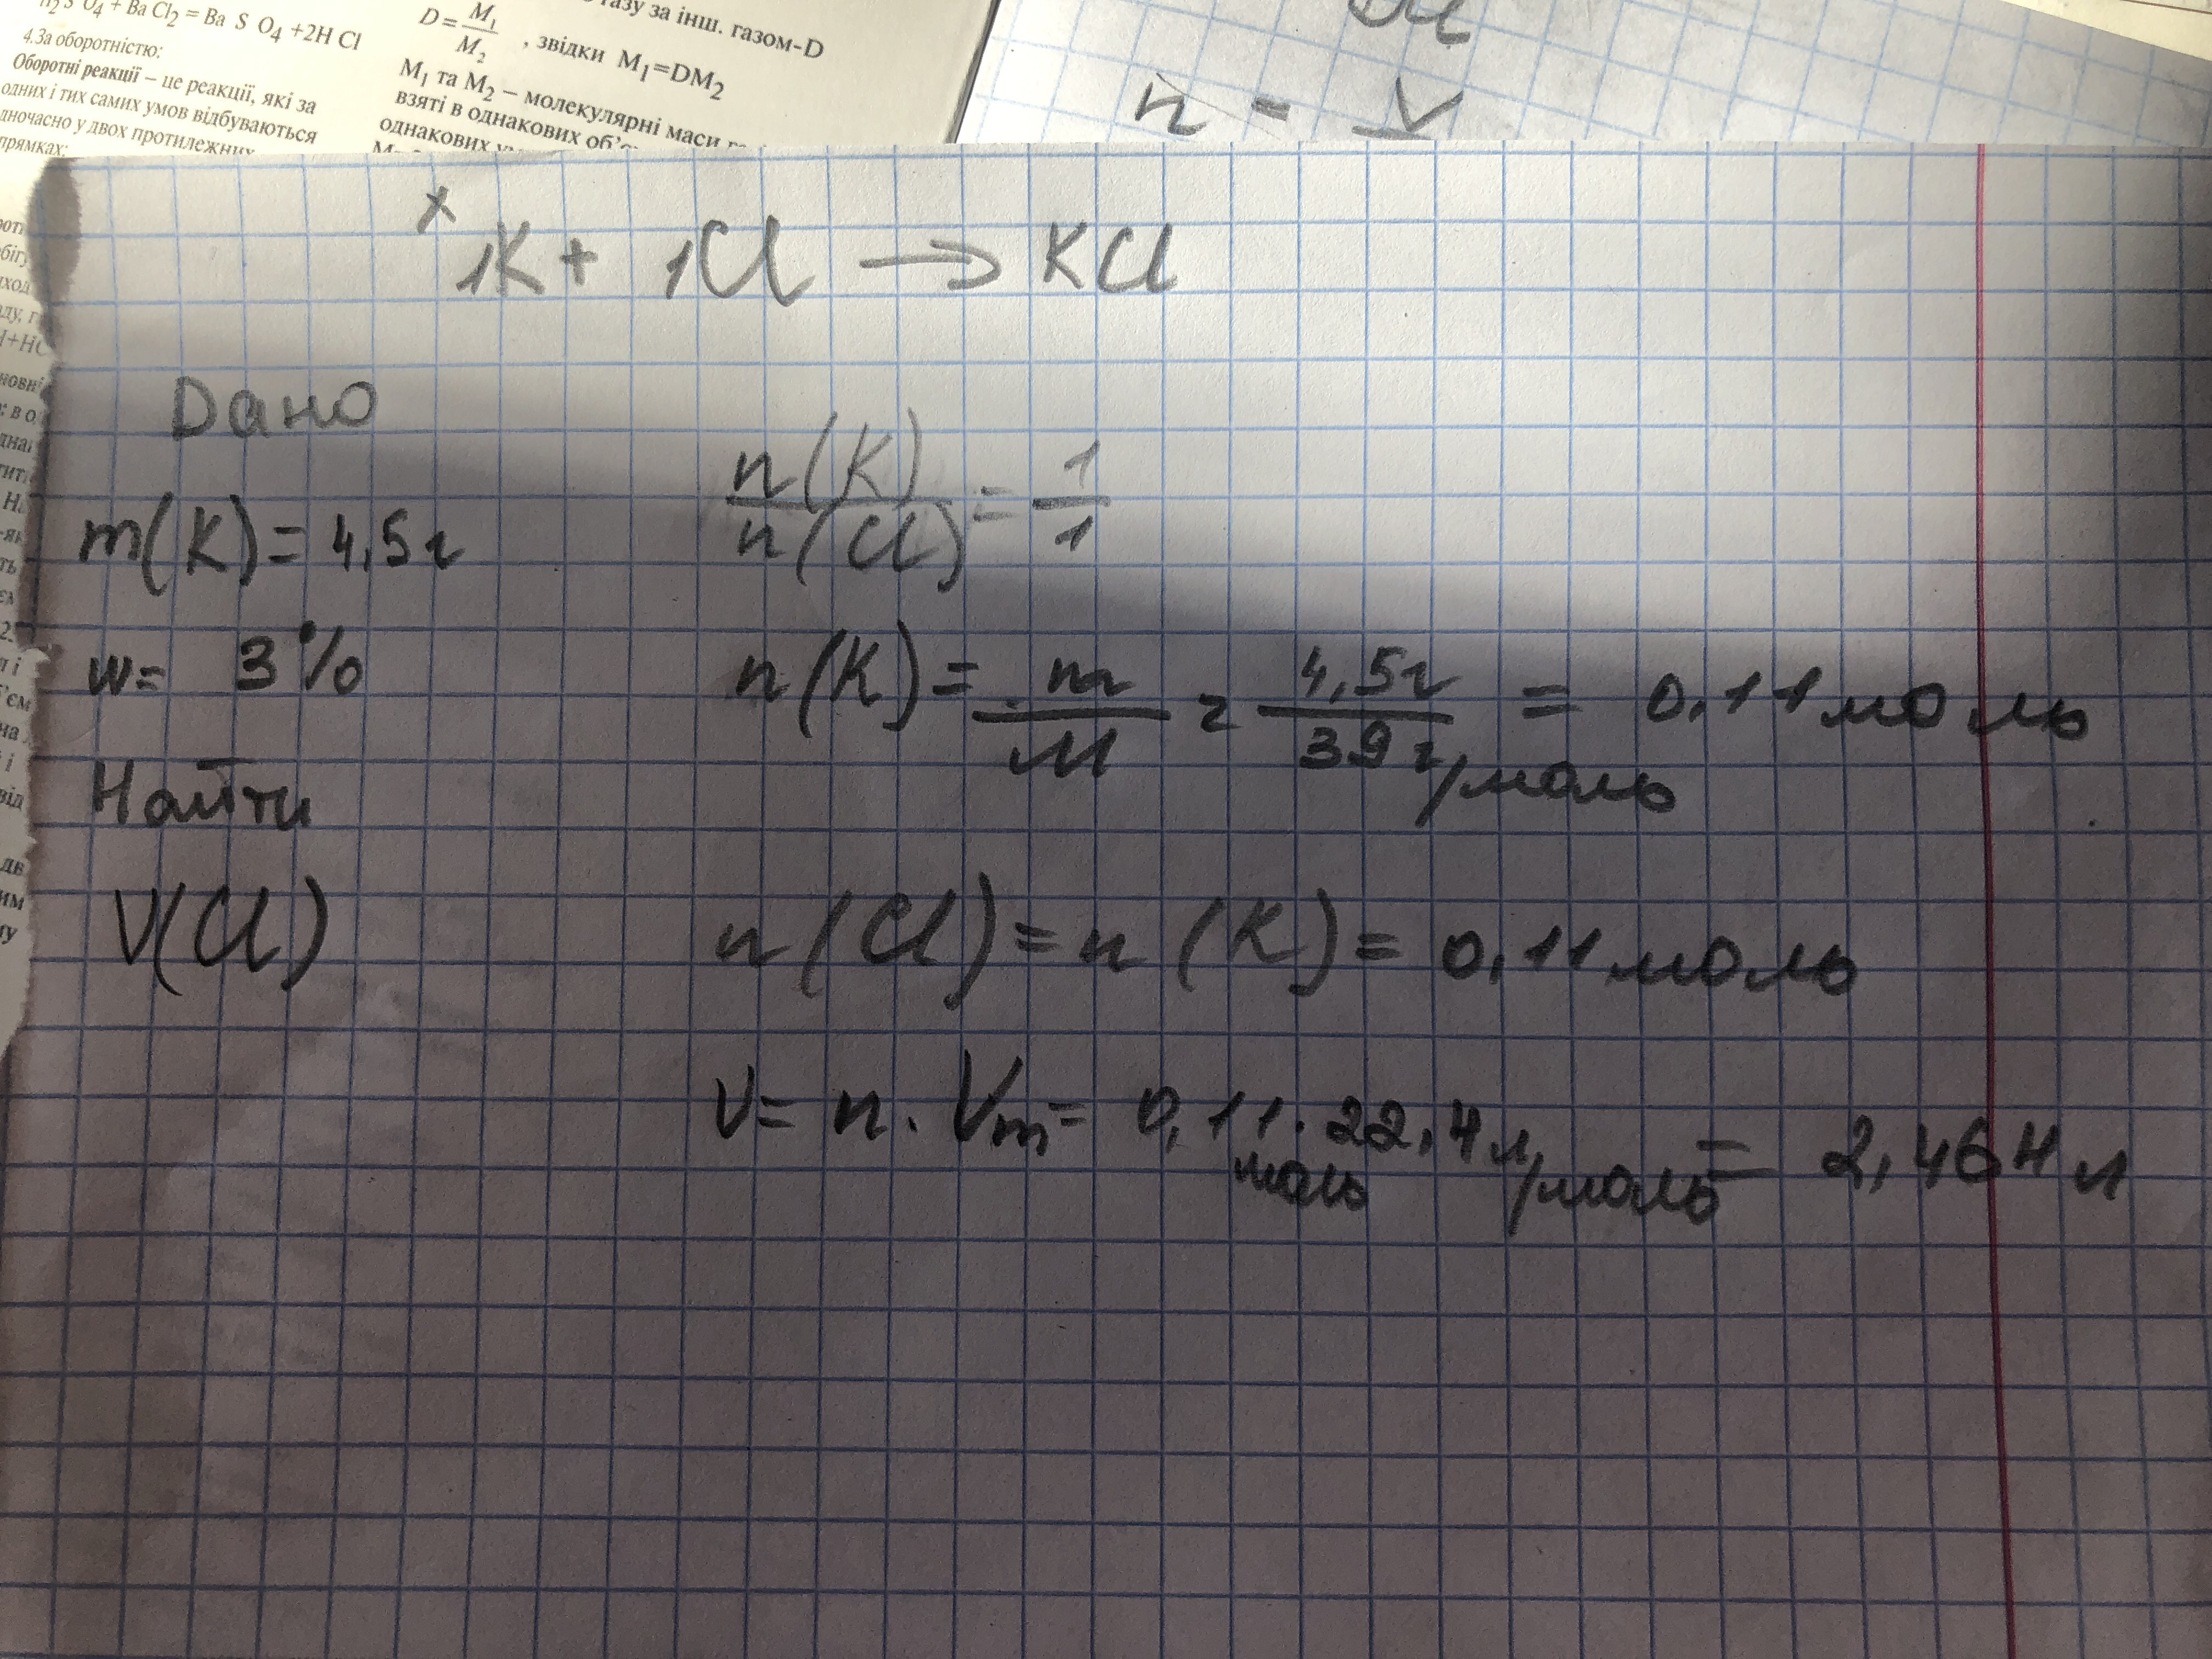 H₂S O₄ + Ba Cl₂ = Ba S O₄ +2H Cl
4.За оборотністю:
Оборотні реакції – це реакції, які за
одних і тих самих умов відбуваються
дночасно у двох протилежних
прямках:
газу за інш. газом-D
D = M₁/M₂ , звідки M₁=DM₂
M₁ та M₂ – молекулярні маси
взяті в однакових об'є
однакових
n = V
x
1K + 1Cl → KCl
Dано
n(K)/n(Cl) = 1/1
m(K) = 4,5г
w= 3%
n(K) = m/M = 4,5г/39г/моль = 0,11моль
Найти
V(Cl)
n(Cl) = n(K) = 0,11моль
V= n · Vm = 0,11 моль · 22,4л/моль = 2,464л